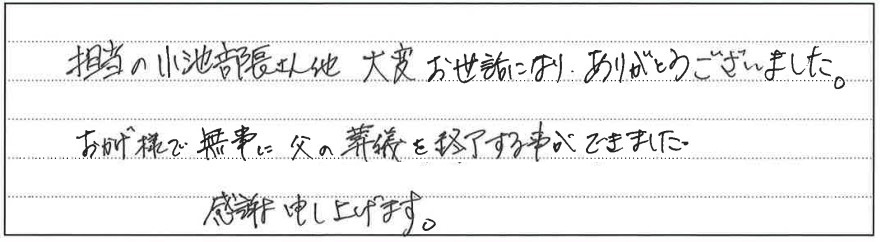 担当の小池部長さん他 大変お世話になり、ありがとうございました。
おかげ様で無事に父の葬儀を終了する事ができました。
感謝申し上げます。